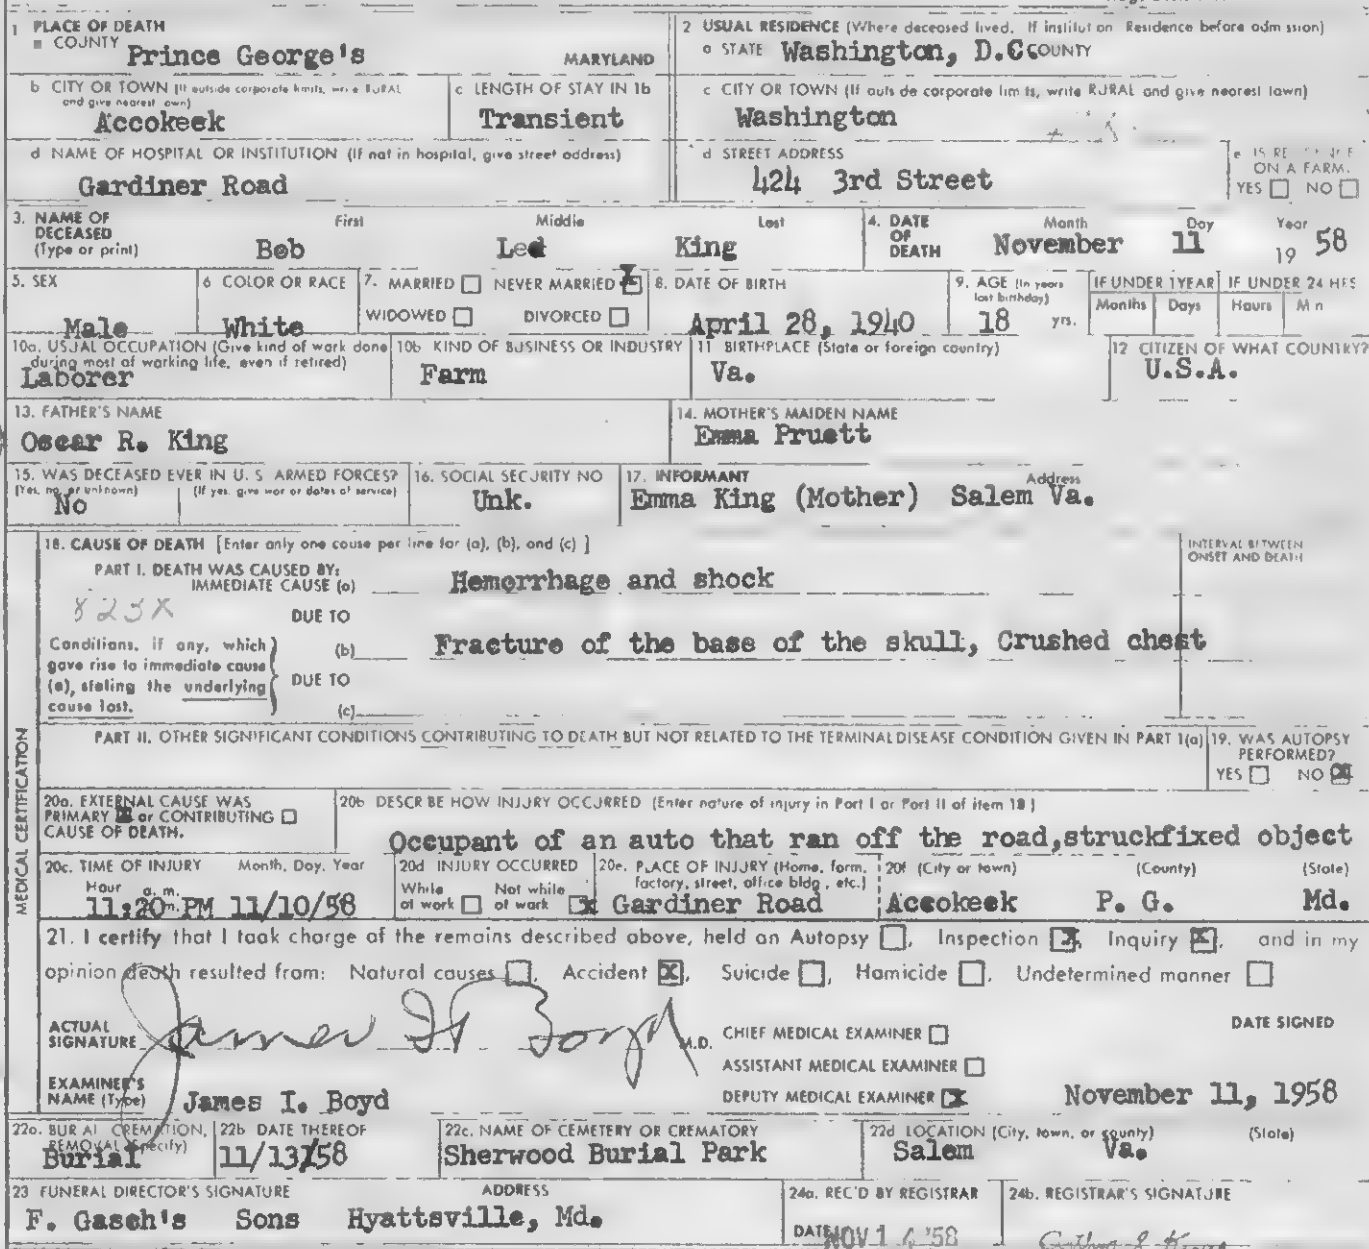 1 PLACE OF DEATH
a COUNTY Prince George's MARYLAND
2 USUAL RESIDENCE (Where deceased lived. If institution Residence before admission)
a STATE Washington, D.C. COUNTY
b CITY OR TOWN (If outside corporate limits, write RURAL and give nearest town)
Accokeek
c LENGTH OF STAY IN 1b
Transient
c CITY OR TOWN (If outside corporate limits, write RURAL and give nearest town)
Washington
d NAME OF HOSPITAL OR INSTITUTION (If not in hospital, give street address)
Gardiner Road
d STREET ADDRESS
424 3rd Street
e IS RESIDENCE ON A FARM.
YES NO
3. NAME OF DECEASED (Type or print)
First Middle Last
Bob Lee King
4. DATE OF DEATH
Month Day Year
November 11 19 58
5. SEX
Male
6 COLOR OR RACE
White
7. MARRIED NEVER MARRIED X
WIDOWED DIVORCED
8. DATE OF BIRTH
April 28, 1940
9. AGE (In years last birthday)
18 yrs.
IF UNDER 1 YEAR IF UNDER 24 HRS
Months Days Hours Min
10a. USUAL OCCUPATION (Give kind of work done during most of working life, even if retired)
Laborer
10b KIND OF BUSINESS OR INDUSTRY
Farm
11 BIRTHPLACE (State or foreign country)
Va.
12 CITIZEN OF WHAT COUNTRY?
U.S.A.
13. FATHER'S NAME
Oscar R. King
14. MOTHER'S MAIDEN NAME
Emma Pruett
15. WAS DECEASED EVER IN U. S ARMED FORCES?
(Yes, no, or unknown) (If yes, give war or dates of service)
No
16. SOCIAL SECURITY NO
Unk.
17. INFORMANT Address
Emma King (Mother) Salem Va.
MEDICAL CERTIFICATION
18. CAUSE OF DEATH [Enter only one cause per line for (a), (b), and (c) ]
INTERVAL BETWEEN ONSET AND DEATH
PART I. DEATH WAS CAUSED BY:
IMMEDIATE CAUSE (a) Hemorrhage and shock
823X
DUE TO
Conditions, if any, which gave rise to immediate cause (a), stating the underlying cause last.
(b) Fracture of the base of the skull, Crushed chest
DUE TO
(c)
PART II. OTHER SIGNIFICANT CONDITIONS CONTRIBUTING TO DEATH BUT NOT RELATED TO THE TERMINAL DISEASE CONDITION GIVEN IN PART 1(a)
19. WAS AUTOPSY PERFORMED?
YES NO X
20a. EXTERNAL CAUSE WAS
PRIMARY X or CONTRIBUTING
CAUSE OF DEATH.
20b DESCRIBE HOW INJURY OCCURRED (Enter nature of injury in Part I or Part II of item 18)
Occupant of an auto that ran off the road,struckfixed object
20c. TIME OF INJURY Month, Day, Year
Hour a. m.
11:20 m. PM 11/10/58
20d INJURY OCCURRED
While at work Not while at work X
20e. PLACE OF INJURY (Home, farm, factory, street, office bldg, etc.)
Gardiner Road
20f (City or town) (County) (State)
Accokeek P. G. Md.
21. I certify that I took charge of the remains described above, held an Autopsy , Inspection X, Inquiry X, and in my
opinion death resulted from: Natural causes , Accident X, Suicide , Homicide , Undetermined manner
ACTUAL SIGNATURE James I Boyd M.D.
CHIEF MEDICAL EXAMINER
ASSISTANT MEDICAL EXAMINER
DEPUTY MEDICAL EXAMINER X
DATE SIGNED
November 11, 1958
EXAMINER'S NAME (Type) James I. Boyd
22a. BURIAL CREMATION, REMOVAL (Specify)
Burial
22b DATE THEREOF
11/13/58
22c. NAME OF CEMETERY OR CREMATORY
Sherwood Burial Park
22d LOCATION (City, town, or county) (State)
Salem Va.
23 FUNERAL DIRECTOR'S SIGNATURE ADDRESS
F. Gasch's Sons Hyattsville, Md.
24a. REC'D BY REGISTRAR
DATE NOV 14 '58
24b. REGISTRAR'S SIGNATURE